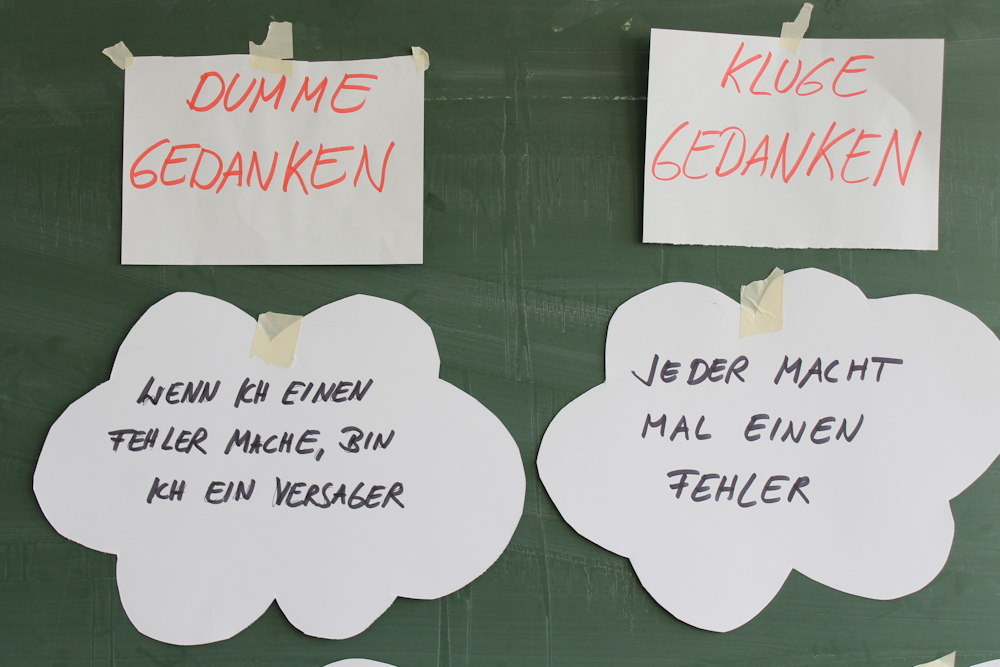 DUMME
GEDANKEN
KLUGE
GEDANKEN
WENN ICH EINEN
FEHLER MACHE, BIN
ICH EIN VERSAGER
JEDER MACHT
MAL EINEN
FEHLER